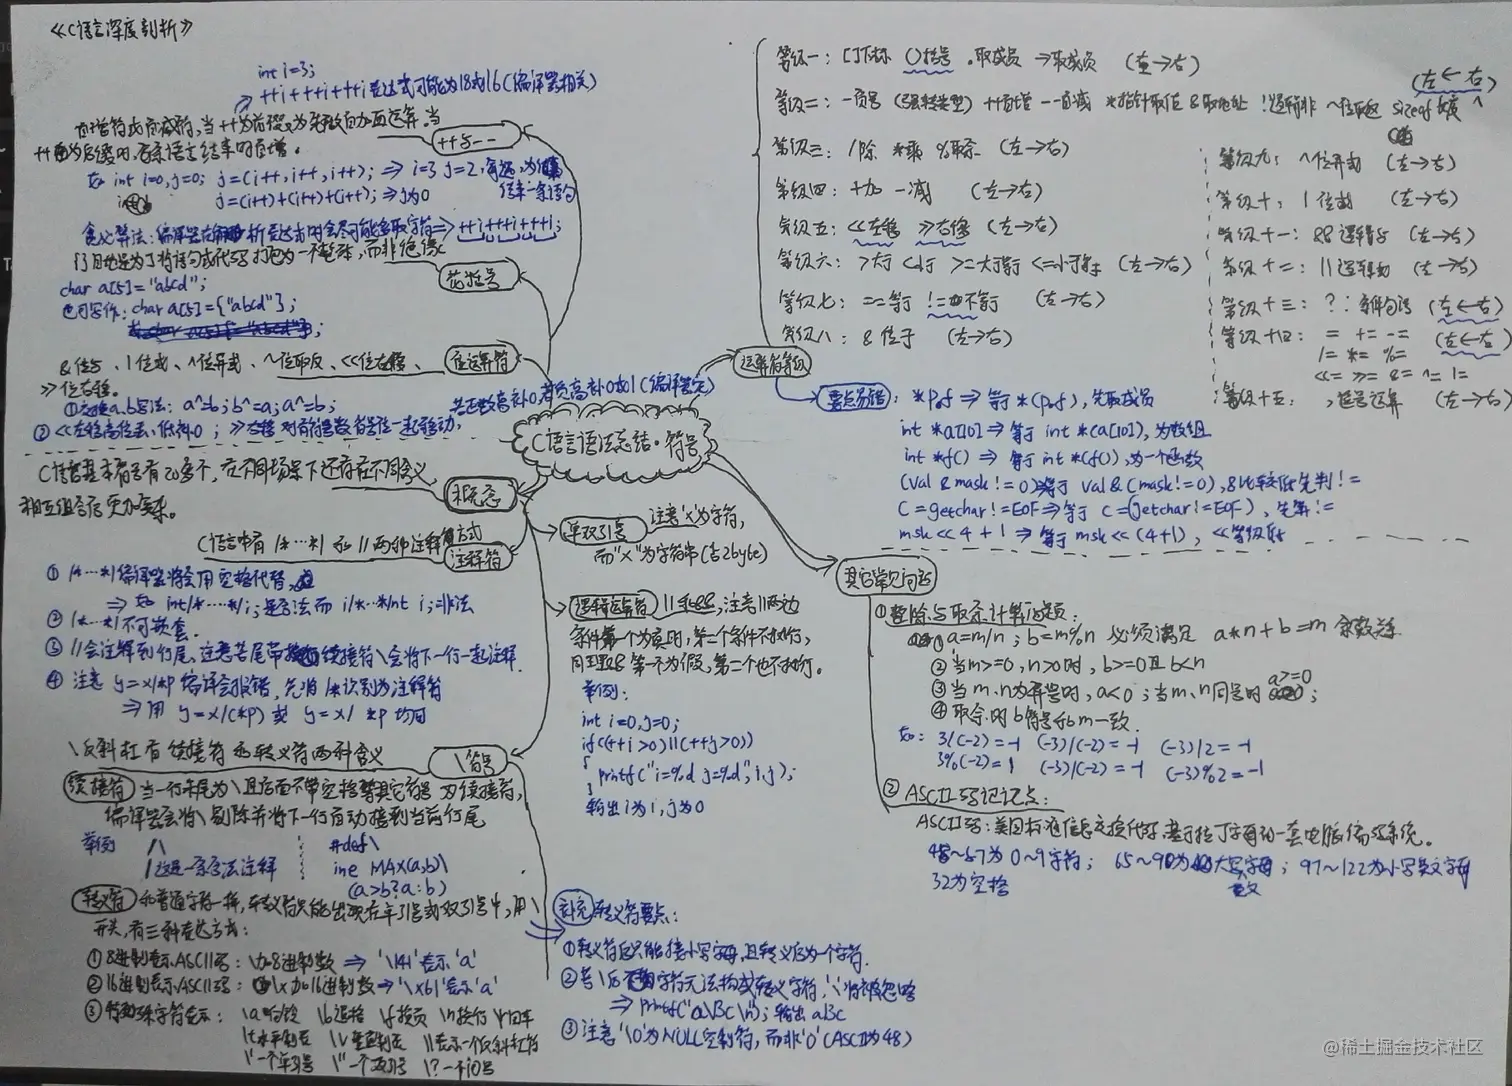 《C语言深度剖析》
int i=3;
++i+++i+++i 表达式可能为18或16(编译器相关)
自增符或自减符,当++为前缀,为先自加再运算。当
++为后缀时,在条语言结束时自增。
++与--
如 int i=0,j=0; j=(i++,i++,i++); ⇒ i=3 j=2,
j=(i++)+(i++)+(i++); ⇒ j为0
结束一条语句
贪心算法:编译器在分析表达式时会尽可能多取字符⇒ ++i+++i+++i;
{}目地是为了将语句或代码打包为一个整体,而非绝缘
花括号
char a[5]="abcd";
也可写作: char a[5]={"abcd"};
&位与、|位或、^位异或、~位取反、<<位左移、
>>位右移。
位运算符
①交换a,b写法: a^=b; b^=a; a^=b;
若正数高补0,若负高补0或1(编译器定)
②<<左移高位丢,低补0; >>右移 对有符号数符号位一起移动,
C语言语法总结·符号
C语言基本符号有20多个,在不同场景下还存在不同含义
相互组合后更加复杂。
概念
C语言中有 /*…*/ 和 // 两种注释方式
注释符
①/*…*/编译器将会用空格代替,
⇒ 如 int/*…*/i;是合法而 i/*…*/nt i;非法
②/*…*/不可嵌套.
③//会注释到行尾,注意若尾带续接符\会将下一行一起注释.
④注意 y=x/*p 编译会报错,先将/*识别为注释符
⇒用 y=x/(*p) 或 y=x/ *p 均可
\反斜杠有续接符和转义符两种含义
\符号
续接符 当一行末尾为\且后面不带空格等其它符号 为续接符,
编译器会将\剔除并将下一行自动接到当前行尾
举例 /\
/这是一条合法注释
#def\
ine MAX(a,b)\
(a>b?a:b)
转义符 和普通字符一样,转义符只能出现在单引号或双引号中,用\
开头,有三种表达方式:
①8进制表示ASCII码: \加8进制数 ⇒ '\141'表示'a'
②16进制表示ASCII码: \x加16进制数⇒'\x61'表示'a'
③特殊字符表示: \a响铃 \b退格 \f换页 \n换行 \r回车
\t水平制表 \v垂直制表 \\表示一个反斜杠符
\'一个单引号 \"一个双引号 \?一个问号
单双引号
注意'x'为字符,
而"x"为字符串(占2byte)
逻辑运算符 ||和&&,注意||两边
条件第一个为真时,第二个条件不执行,
同理&&第一个为假,第二个也不执行。
举例:
int i=0,j=0;
if((++i>0)||(++j>0))
{
printf("i=%d j=%d",i,j);
}
输出i为1,j为0
补充 转义符要点:
①转义符后只能接小写字母,且转义后为一个字符.
②若\后字符无法构成转义字符,'\'将被忽略
⇒ printf("a\BC\n"); 输出 aBC
③注意'\0'为NULL空制符,而非'0'(ASCII为48)
运算符等级
等级一: []下标 ()括号 .取成员 ->取成员 (左→右)
(左←右)
等级二: -负号 (强转类型) ++自增 --自减 *指针取值 &取地址 !逻辑非 ~位取反 sizeof
等级三: /除 *乘 %取余 (左→右)
等级四: +加 -减 (左→右)
等级五: <<左移 >>右移 (左→右)
等级六: >大于 <小于 >=大于等于 <=小于等于 (左→右)
等级七: ==等于 !=不等于 (左→右)
等级八: &位于 (左→右)
等级九: ^位异或 (左→右)
等级十: |位或 (左→右)
等级十一: &&逻辑与 (左→右)
等级十二: ||逻辑或 (左→右)
等级十三: ?: 条件句法 (左←右)
等级十四: = += -=
/= *= %= (左←右)
<<= >>= &= ^= |=
等级十五: ,逗号运算 (左→右)
要点易错: *p.f ⇒ 等于 *(p.f),先取成员
int *a[10] ⇒ 等于 int *(a[10]),为数组
int *f() ⇒ 等于 int *(f()),为一个函数
(val & mask != 0)⇒等于 val & (mask!=0),&比较低先判!=
C=getchar!=EOF⇒等于 C=(getchar!=EOF),先算!=
msk<<4+1 ⇒ 等于 msk<<(4+1), <<等级低
其它常见问题
①整除与取余计算问题:
①a=m/n; b=m%n 必须满足 a*n+b=m 余数关系
②当m>=0,n>0时, b>=0且b<n
③当m、n为异号时,a<0; 当m、n同号时 a>=0;
④取余时b符号和m一致.
如: 3/(-2)=-1 (-3)/(-2)=-1 (-3)/2=-1
3%(-2)=1 (-3)/(-2)=-1 (-3)%2=-1
②ASCII码记记点:
ASCII码:美国标准信息交换代码,基于拉丁字母的一套电脑编码系统。
48~57为0~9字符; 65~90为大写字母; 97~122为小写英文字母
32为空格
@稀土掘金技术社区